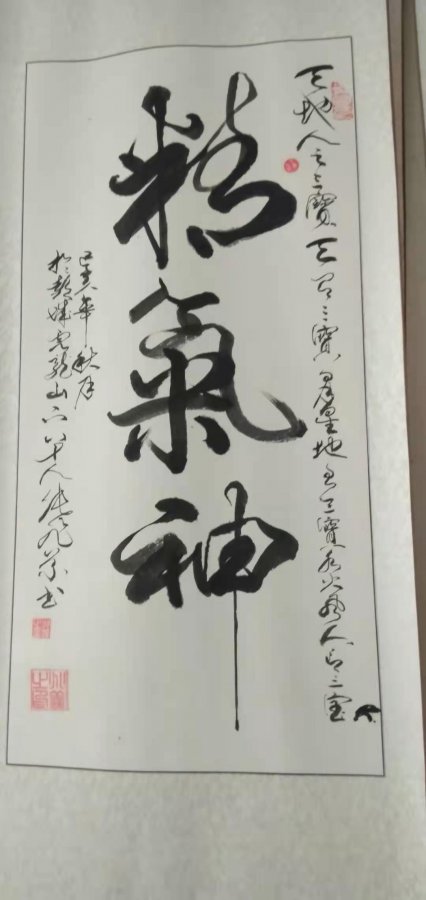 天地人之三寶天有三寶日月星地有三寶水火風人有三寶
精氣神
己亥年秋月
於彭城龍山人书